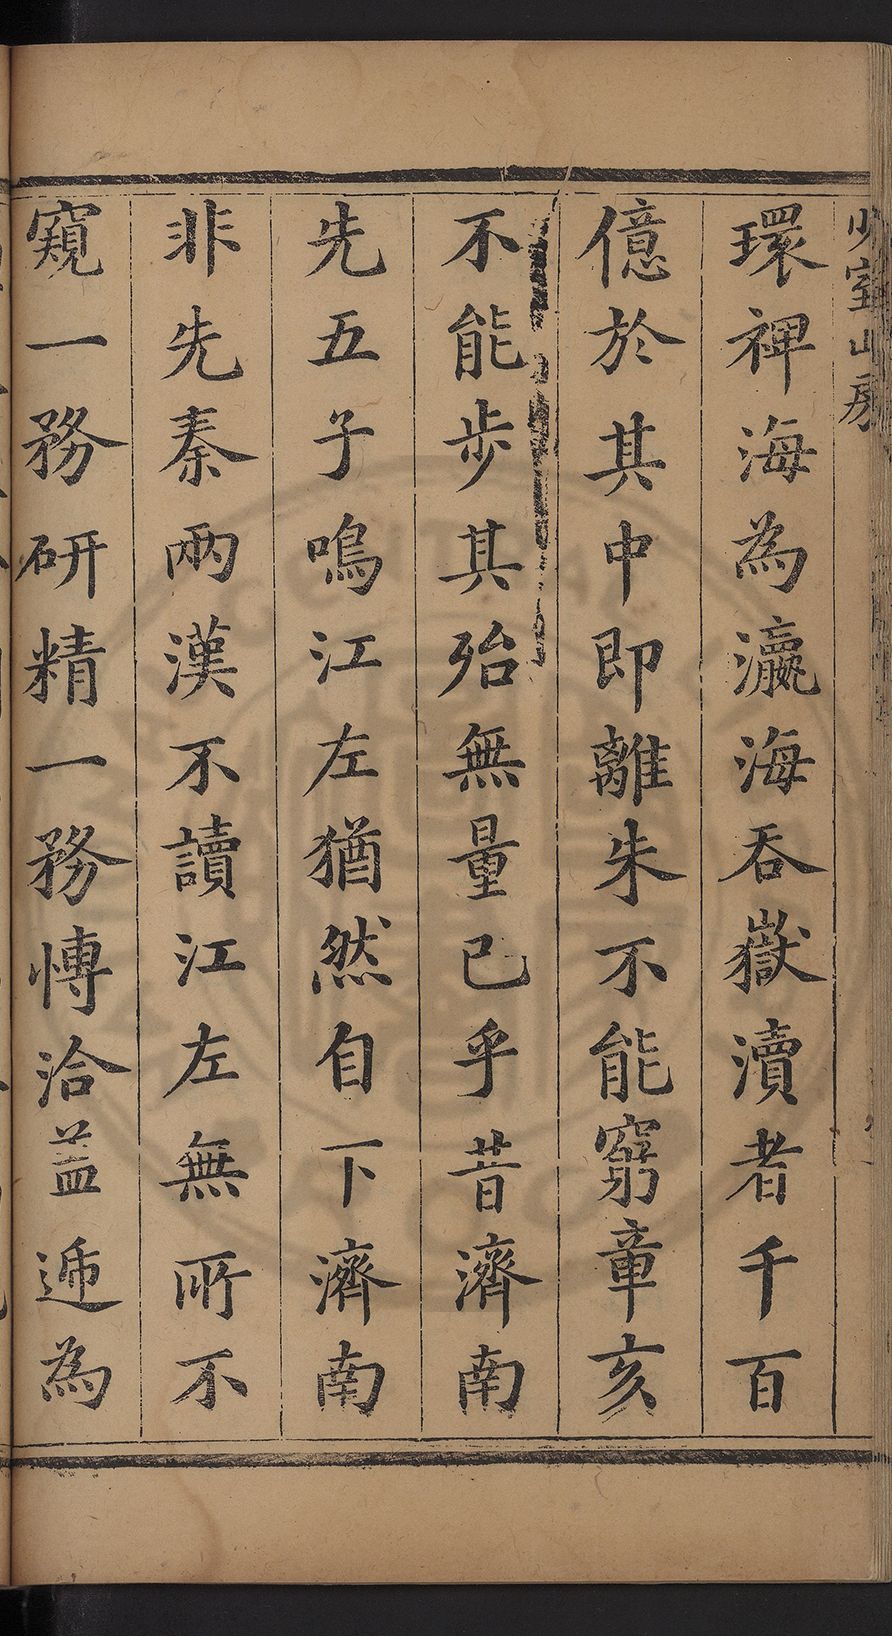 少室山房
環裨海為瀛海吞嶽瀆者千百
億於其中即離朱不能窮章亥
不能步其殆無量已乎昔濟南
先五子鳴江左猶然自下濟南
非先秦兩漢不讀江左無所不
窺一務研精一務愽洽葢遞為